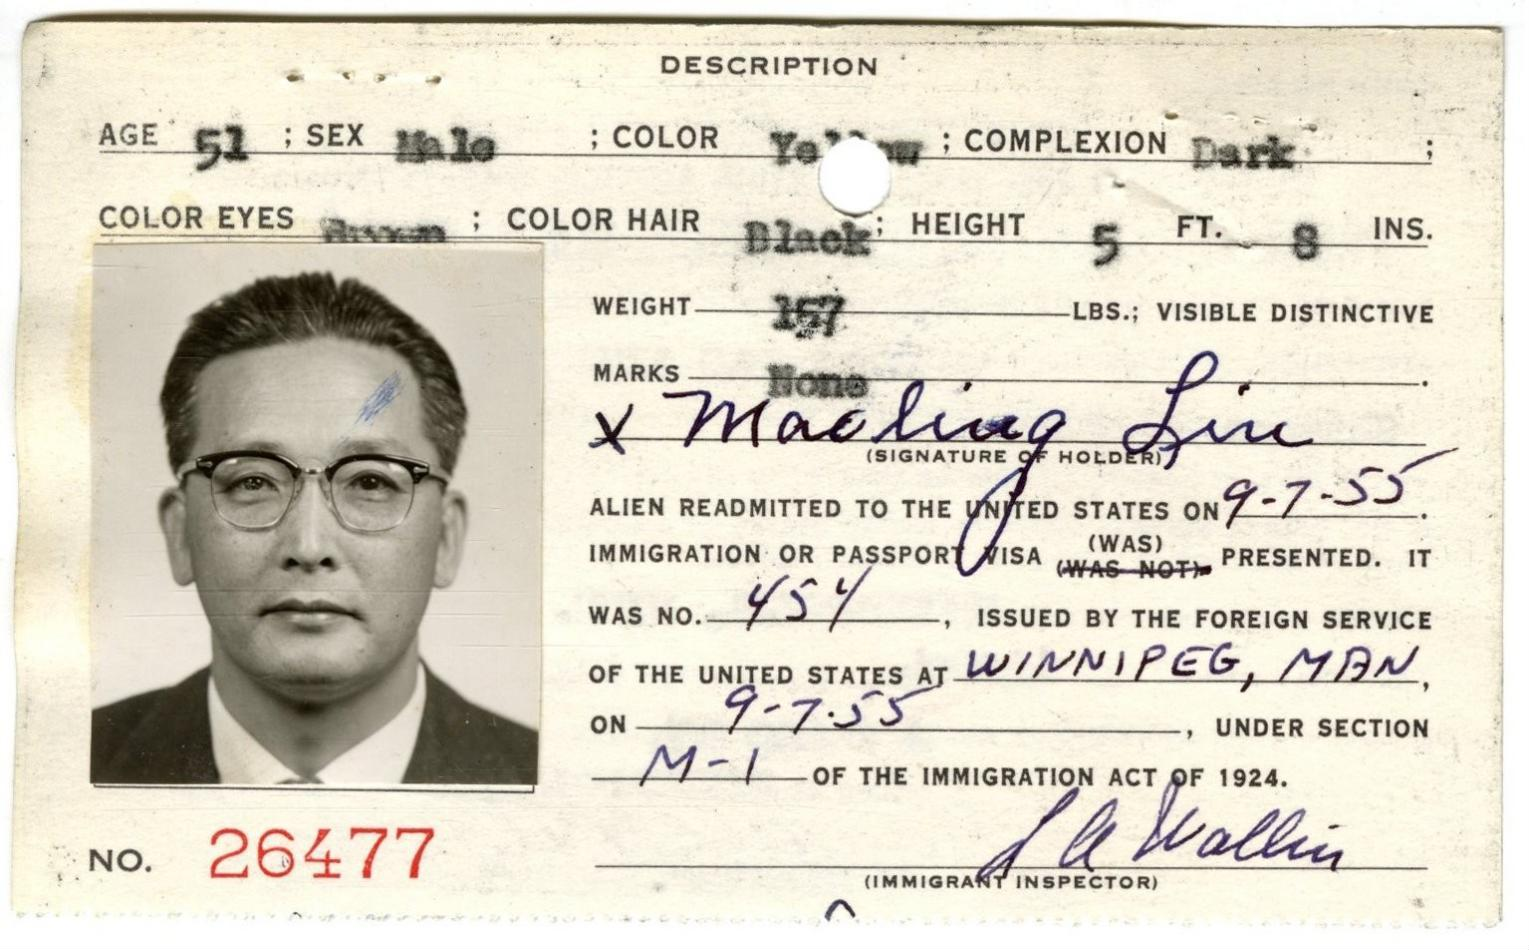 DESCRIPTION
AGE 51 ; SEX Male ; COLOR Yellow ; COMPLEXION Dark ;
COLOR EYES Brown ; COLOR HAIR Black ; HEIGHT 5 FT. 8 INS.
WEIGHT 157 LBS.; VISIBLE DISTINCTIVE
MARKS None .
X Maoling Lin
(SIGNATURE OF HOLDER)
ALIEN READMITTED TO THE UNITED STATES ON 9-7-55.
(WAS)
IMMIGRATION OR PASSPORT VISA (WAS NOT) PRESENTED. IT
WAS NO. 454, ISSUED BY THE FOREIGN SERVICE
OF THE UNITED STATES AT WINNIPEG, MAN,
ON 9-7-55, UNDER SECTION
M-1 OF THE IMMIGRATION ACT OF 1924.
L A Wallin
(IMMIGRANT INSPECTOR)
NO. 26477